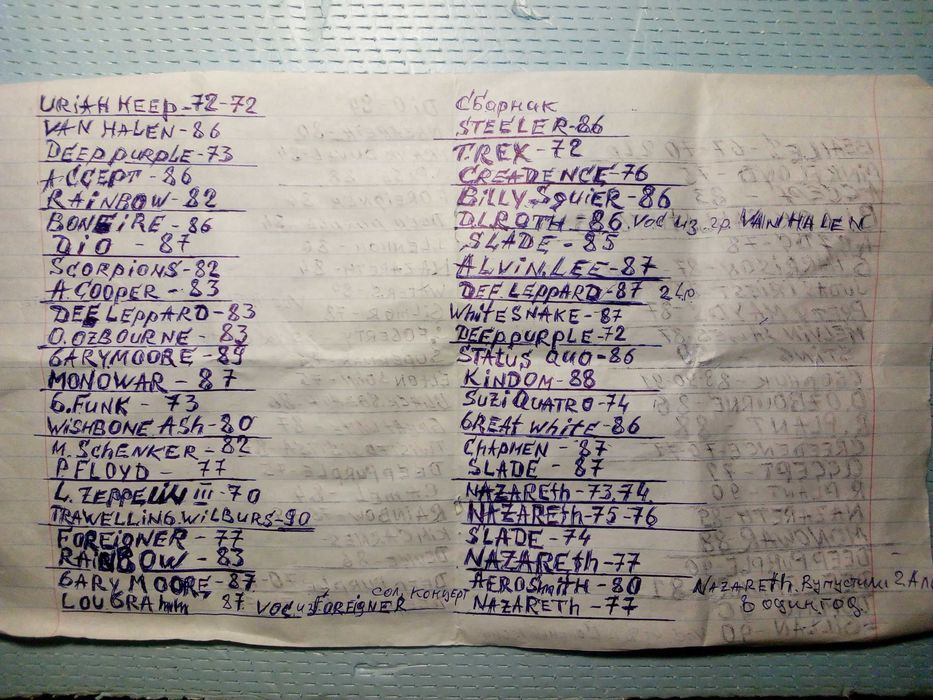 URIAH HEEP-72-72
VAN HALEN-86
DEEP PURPLE-73
ACCEPT - 86
RAINBOW-82
BONFIRE - 86
DIO - 87
SCORPIONS-82
A.COOPER - 83
DEF LEPPARD-83
O.OZBOURNE - 83
GARYMOORE - 89
MONOWAR - 87
G.FUNK - 73
WISHBONE ASH-80
M.SCHENKER-82
P FLOYD - 77
L.ZEPPELIN III-70
TRAWELLING.WILBURS-90
FOREIGNER - 77
RAINBOW - 83
GARY MOORE-87
LOU GRAhmm 87 VOC из FOREIGNER сол. концерт
Сбарнак
STEELER-86
T.REX - 72
CREADENCE-76
BILLY SQUIER - 86
D.L.ROTH - 86. VOC из. гр. VAN HALEN
SLADE - 85
ALVIN.LEE-87
DEF.LEPPARD-87
WhITESNAKE-87
DEEPPURPLE-72
STATUS QUO-86
KINDOM-88
SUZI QUATRO-74
GREAT White-86
CHAPMEN - 87
SLADE - 87
NAZARETh-73,74
NAZARETh-75-76
SLADE - 74
NAZARETh-77
AEROSmITH - 80
NAZARETh - 77
NAZARETh. Вупустили 2
в один год.